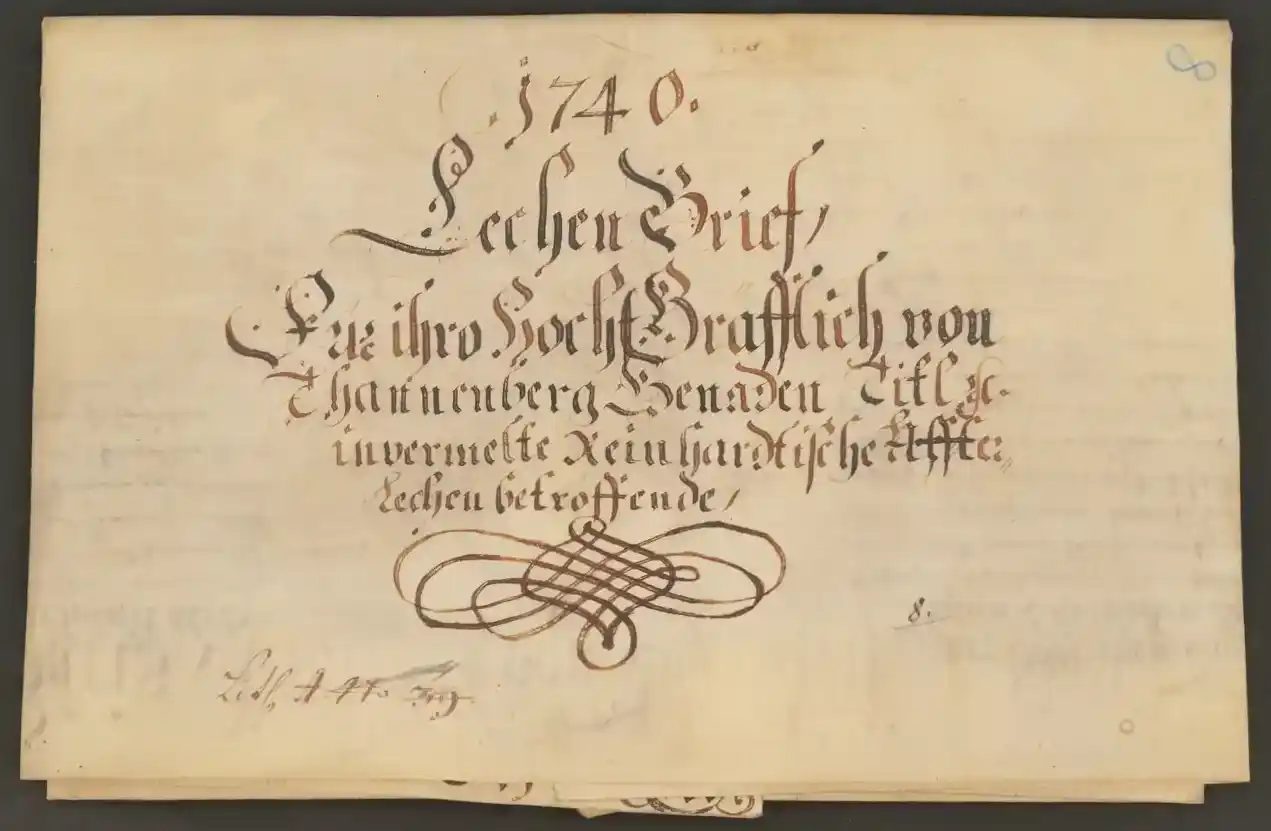 .1740.
Lechen Brief,
Fur ihro Hoch Grafflich von
Thannenberg Genaden Titl
invermelte Reinhardtische Affter
Lechen betroffende,
8.
Lith. A No
8